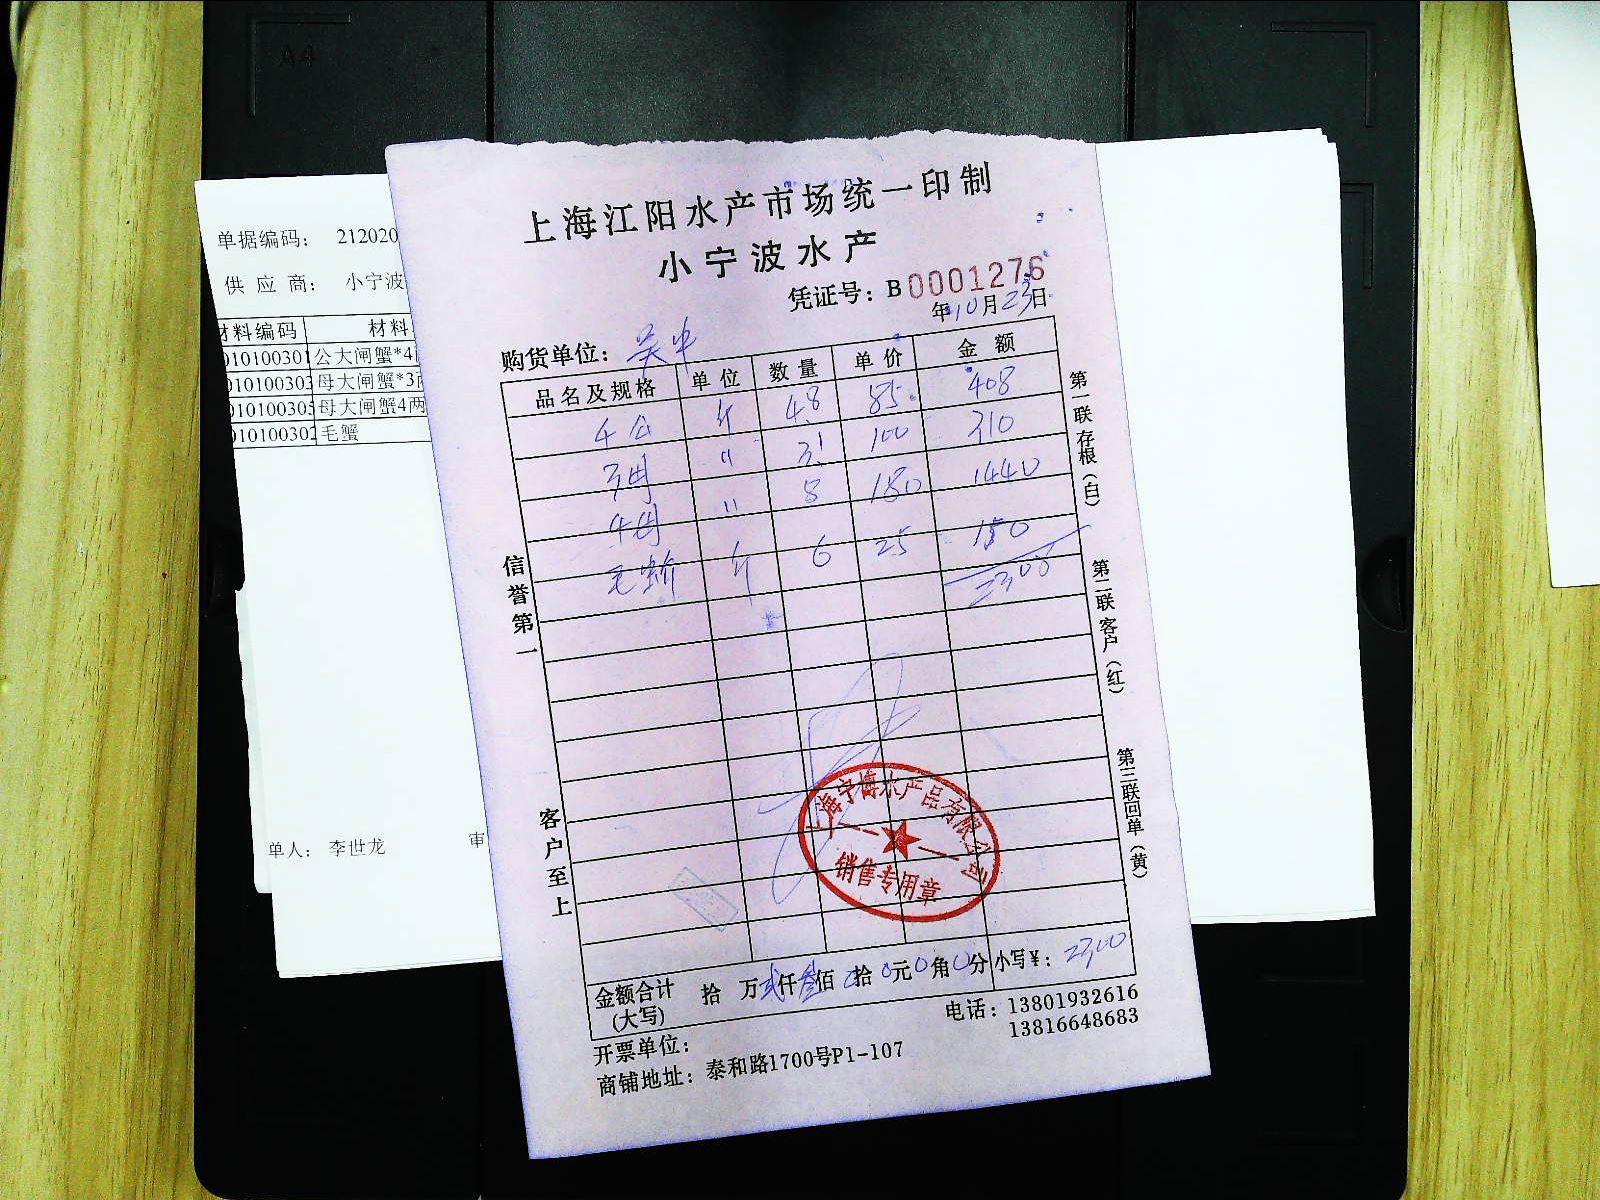 A4
单据编码： 212020
供 应 商： 小宁波
材料编码 材料
010100301 公大闸蟹*4
010100303 母大闸蟹*3两
010100305 母大闸蟹4两
010100302 毛蟹
单人： 李世龙 审
上海江阳水产市场统一印制
小宁波水产
凭证号：B0001276
年10月23日
购货单位：吴中
品名及规格 单位 数量 单价 金额
4公 斤 4.8 85 408
3母 〃 3.1 100 310
4母 〃 8 180 1440
毛蟹 斤 6 25 150
2300
信誉第一
客户至上
第一联存根（白）
第二联客户（红）
第三联回单（黄）
上海宁博水产品有限公司
销售专用章
金额合计（大写） 拾 万贰仟叁佰0拾0元0角0分 小写¥：2300
电话：13801932616
13816648683
开票单位：
商铺地址：泰和路1700号P1-107